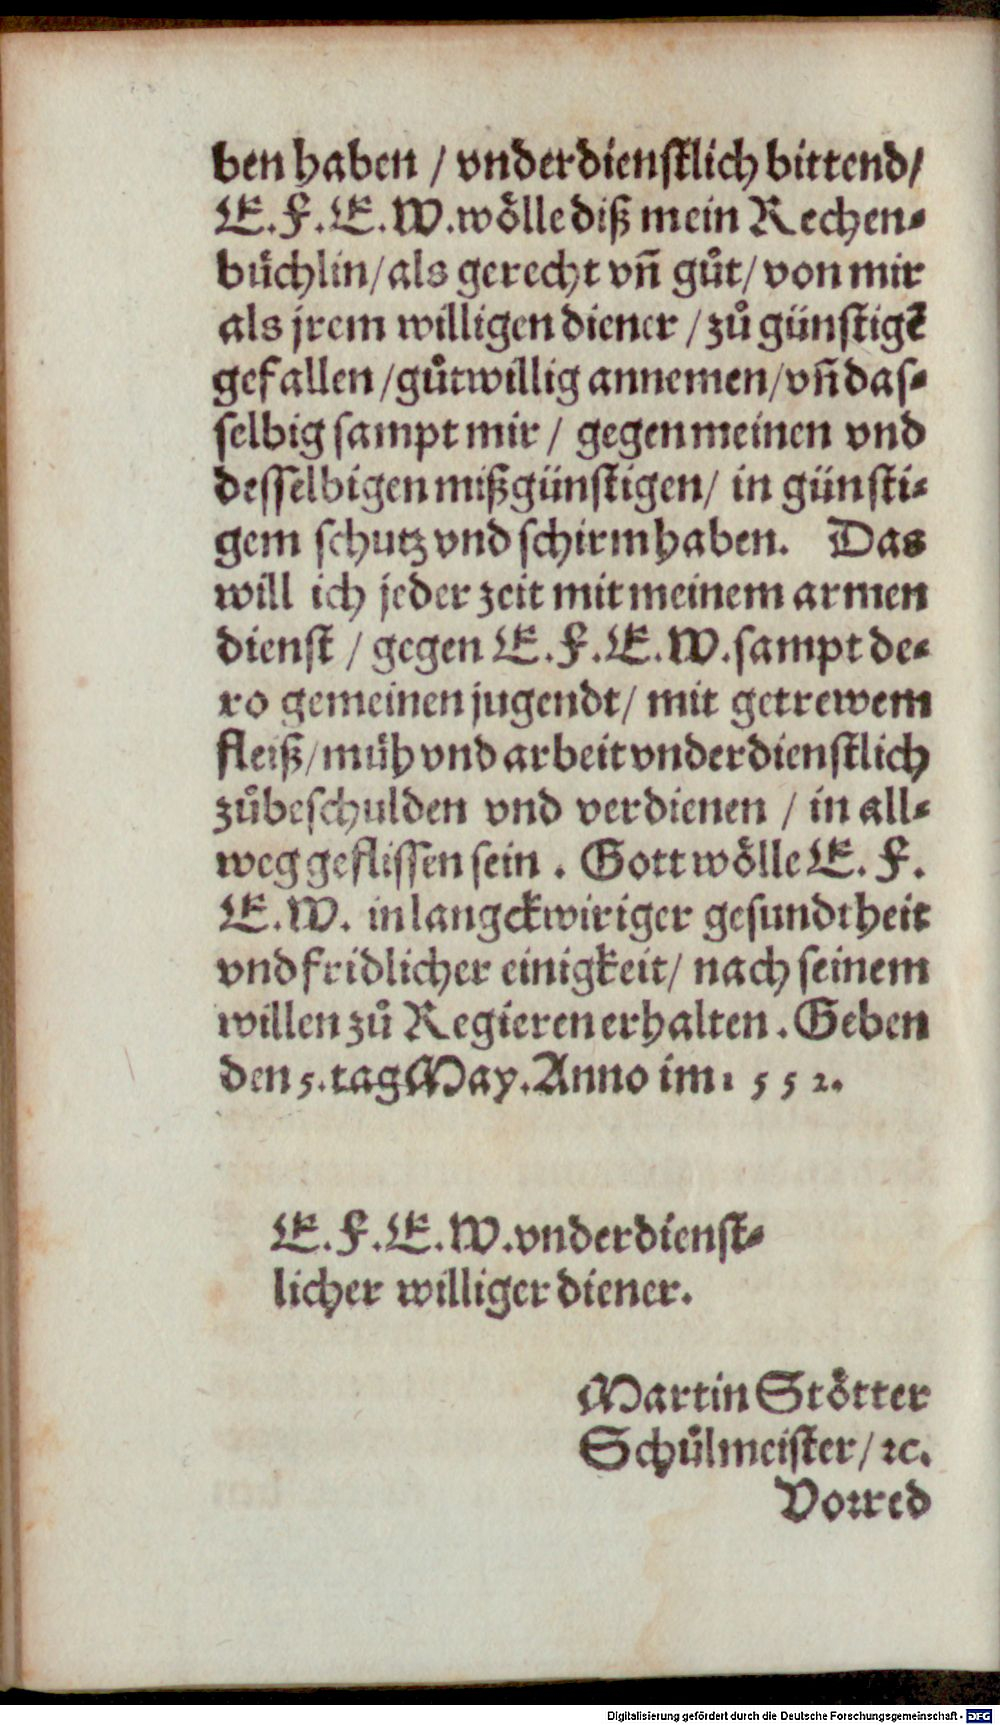 ben haben / vnderdienstlich bittend/
E. F. E. W. woͤlle diß mein Rechen⸗
buͤchlin/ als gerecht vñ guͦt/ von mir
als jrem willigen diener / zuͦ günstigẽ
gefallen /guͦtwillig annemen/ vñ das⸗
selbig sampt mir / gegen meinen vnd
desselbigen mißgünstigen/ in günsti⸗
gem schutz vnd schirm haben. Das
will ich jeder zeit mit meinem armen
dienst / gegen E. F. E. W. sampt de⸗
ro gemeinen jugendt/ mit getrewem
fleiß/ muͤh vnd arbeit vnderdienstlich
zuͦbeschulden vnd verdienen / in all⸗
weg geflissen sein . Gott woͤlle E. F.
E. W. in langckwiriger gesundtheit
vnd fridlicher einigkeit/ nach seinem
willen zuͦ Regieren erhalten . Geben
den 5. tag May. Anno im 1552.
E. F. E. W. vnderdienst⸗
licher williger diener.
Martin Stoͤtter
Schuͦlmeister/ ꝛc.
Vorred
Digitalisierung gefördert durch die Deutsche Forschungsgemeinschaft - DFG